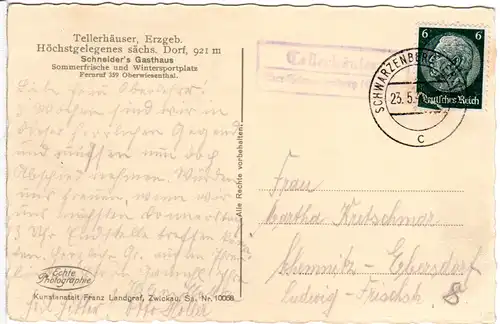 Tellerhäuser, Erzgeb.
Höchstgelegenes sächs. Dorf, 921 m
Schneider's Gasthaus
Sommerfrische und Wintersportplatz
Fernruf 359 Oberwiesenthal.
6 6
Deutsches Reich
SCHWARZENBERG
23.5.
c
Tellerhäuser
Liebe Frau
3 Wochen sind wir in
dieser herrlichen Gegend
und müssen nun doch
Abschied nehmen. Würden
uns freuen, wenn wir
uns nächsten Donnerstag
3 Uhr Endstelle treffen
Alle Rechte vorbehalten.
Frau
Martha Kretschmar
Chemnitz-Ebersdorf
Ludwig-
8
Echte
Photographie
Kunstanstalt Franz Landgraf, Zwickau, Sa. Nr. 10068